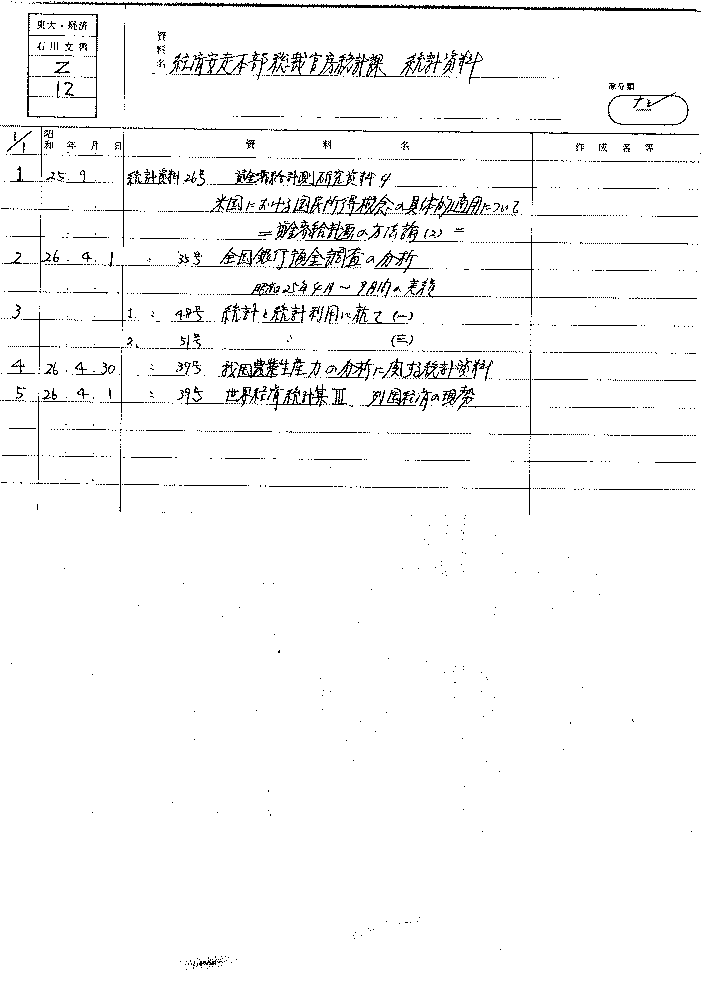 東大・経済
石川文書
Z
12
資料名 経済安定本部総裁官房統計課 統計資料
1/1 昭和 年 月 日 資料名 作成者等
1 25. 9 統計資料26号 資金需給計測研究資料4
米国における国民所得概念の具体的適用について
=資金需給計画の方法論(2)=
2 26. 4. 1 〃 35号 全国銀行預金調査の分析
昭和25年4月〜9月の実績
3 1. 〃 48号 統計と統計利用に就て(一)
2. 51号 〃 (三)
4 26. 4. 30 〃 39号 我国農業生産力の分析に関する統計資料
5 26. 4. 1 〃 39号 世界経済統計集III 列国経済の現勢